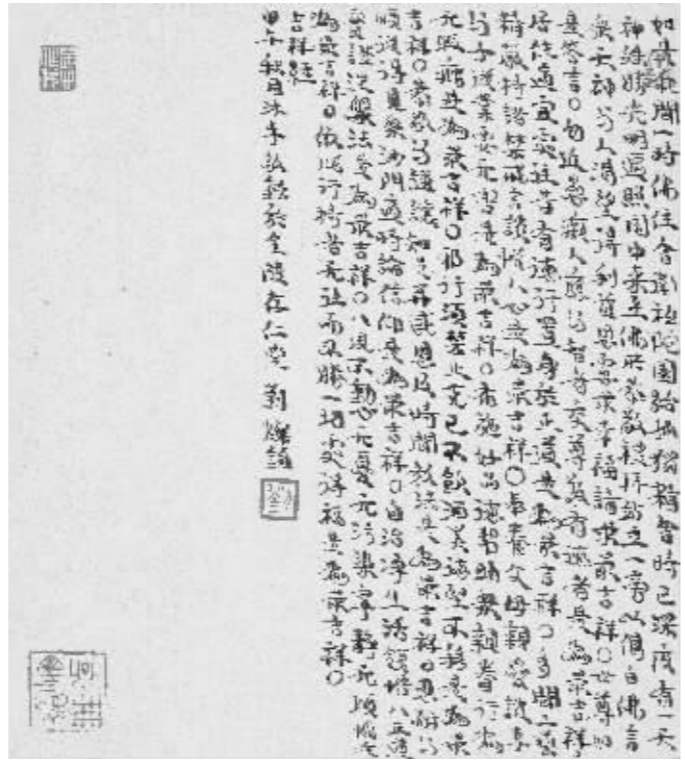 如是我聞一時佛住舍衛祗陀園給孤獨精舍時已深夜有一天
神殊勝光明遍照園中來至佛所恭敬禮拜站立一旁以偈白佛言
眾天神与人渴望得利益思慮求幸福請示最吉祥○世尊如
是答言○勿近愚癡人應与智者交尊敬有德者是為最吉祥
居住適宜處往昔有德行置身於正道是為最吉祥○多聞工藝
精嚴持諸禁戒言談悅人心是為最吉祥○奉養父母親愛護妻
与子從業要无害是為最吉祥○布施好品德幫助眾親眷行為
无瑕疵是為最吉祥○邪行須禁止克己不飲酒美德堅不移是為最
吉祥○恭敬与謙讓知足并感恩及時聞教法是為最吉祥○忍耐与
順從得見眾沙門適時論信仰是為最吉祥○自治淨生活領悟八正道
實證涅槃法是為最吉祥○八風不動心无憂无污染寧靜无煩惱是
為最吉祥○依此行持者无往而不勝一切處得福是為最吉祥○
吉祥經
甲午秋月沐手敬錄於金陵存仁堂 劉